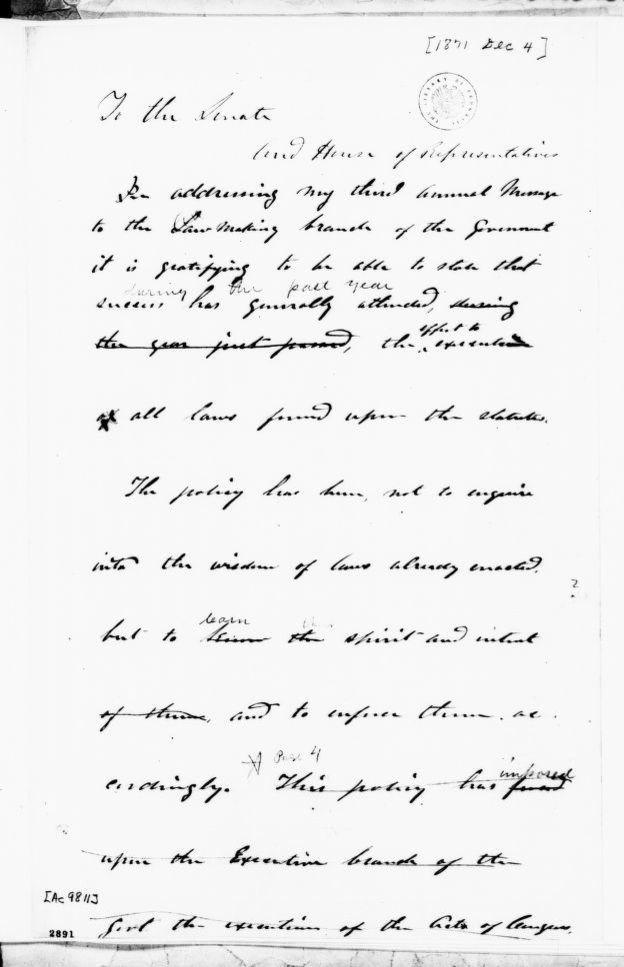 [1871 Dec 4]
To the Senate
and House of Representatives
In addressing my third annual Message
to the Law Making branch of the Government
it is gratifying to be able to state that
during the past year
success has generally attended, during
the year just passed, the effort to execute
of all laws found upon the statutes.
The policy has been, not to enquire
into the wisdom of laws already enacted,
but to learn the spirit and intent
of them, and to enforce them ac-
cordingly. Page 4 This policy has imposed
upon the Executive branch of the
Govt the execution of the Acts of Congress,
[Ac 9811]
2891
2